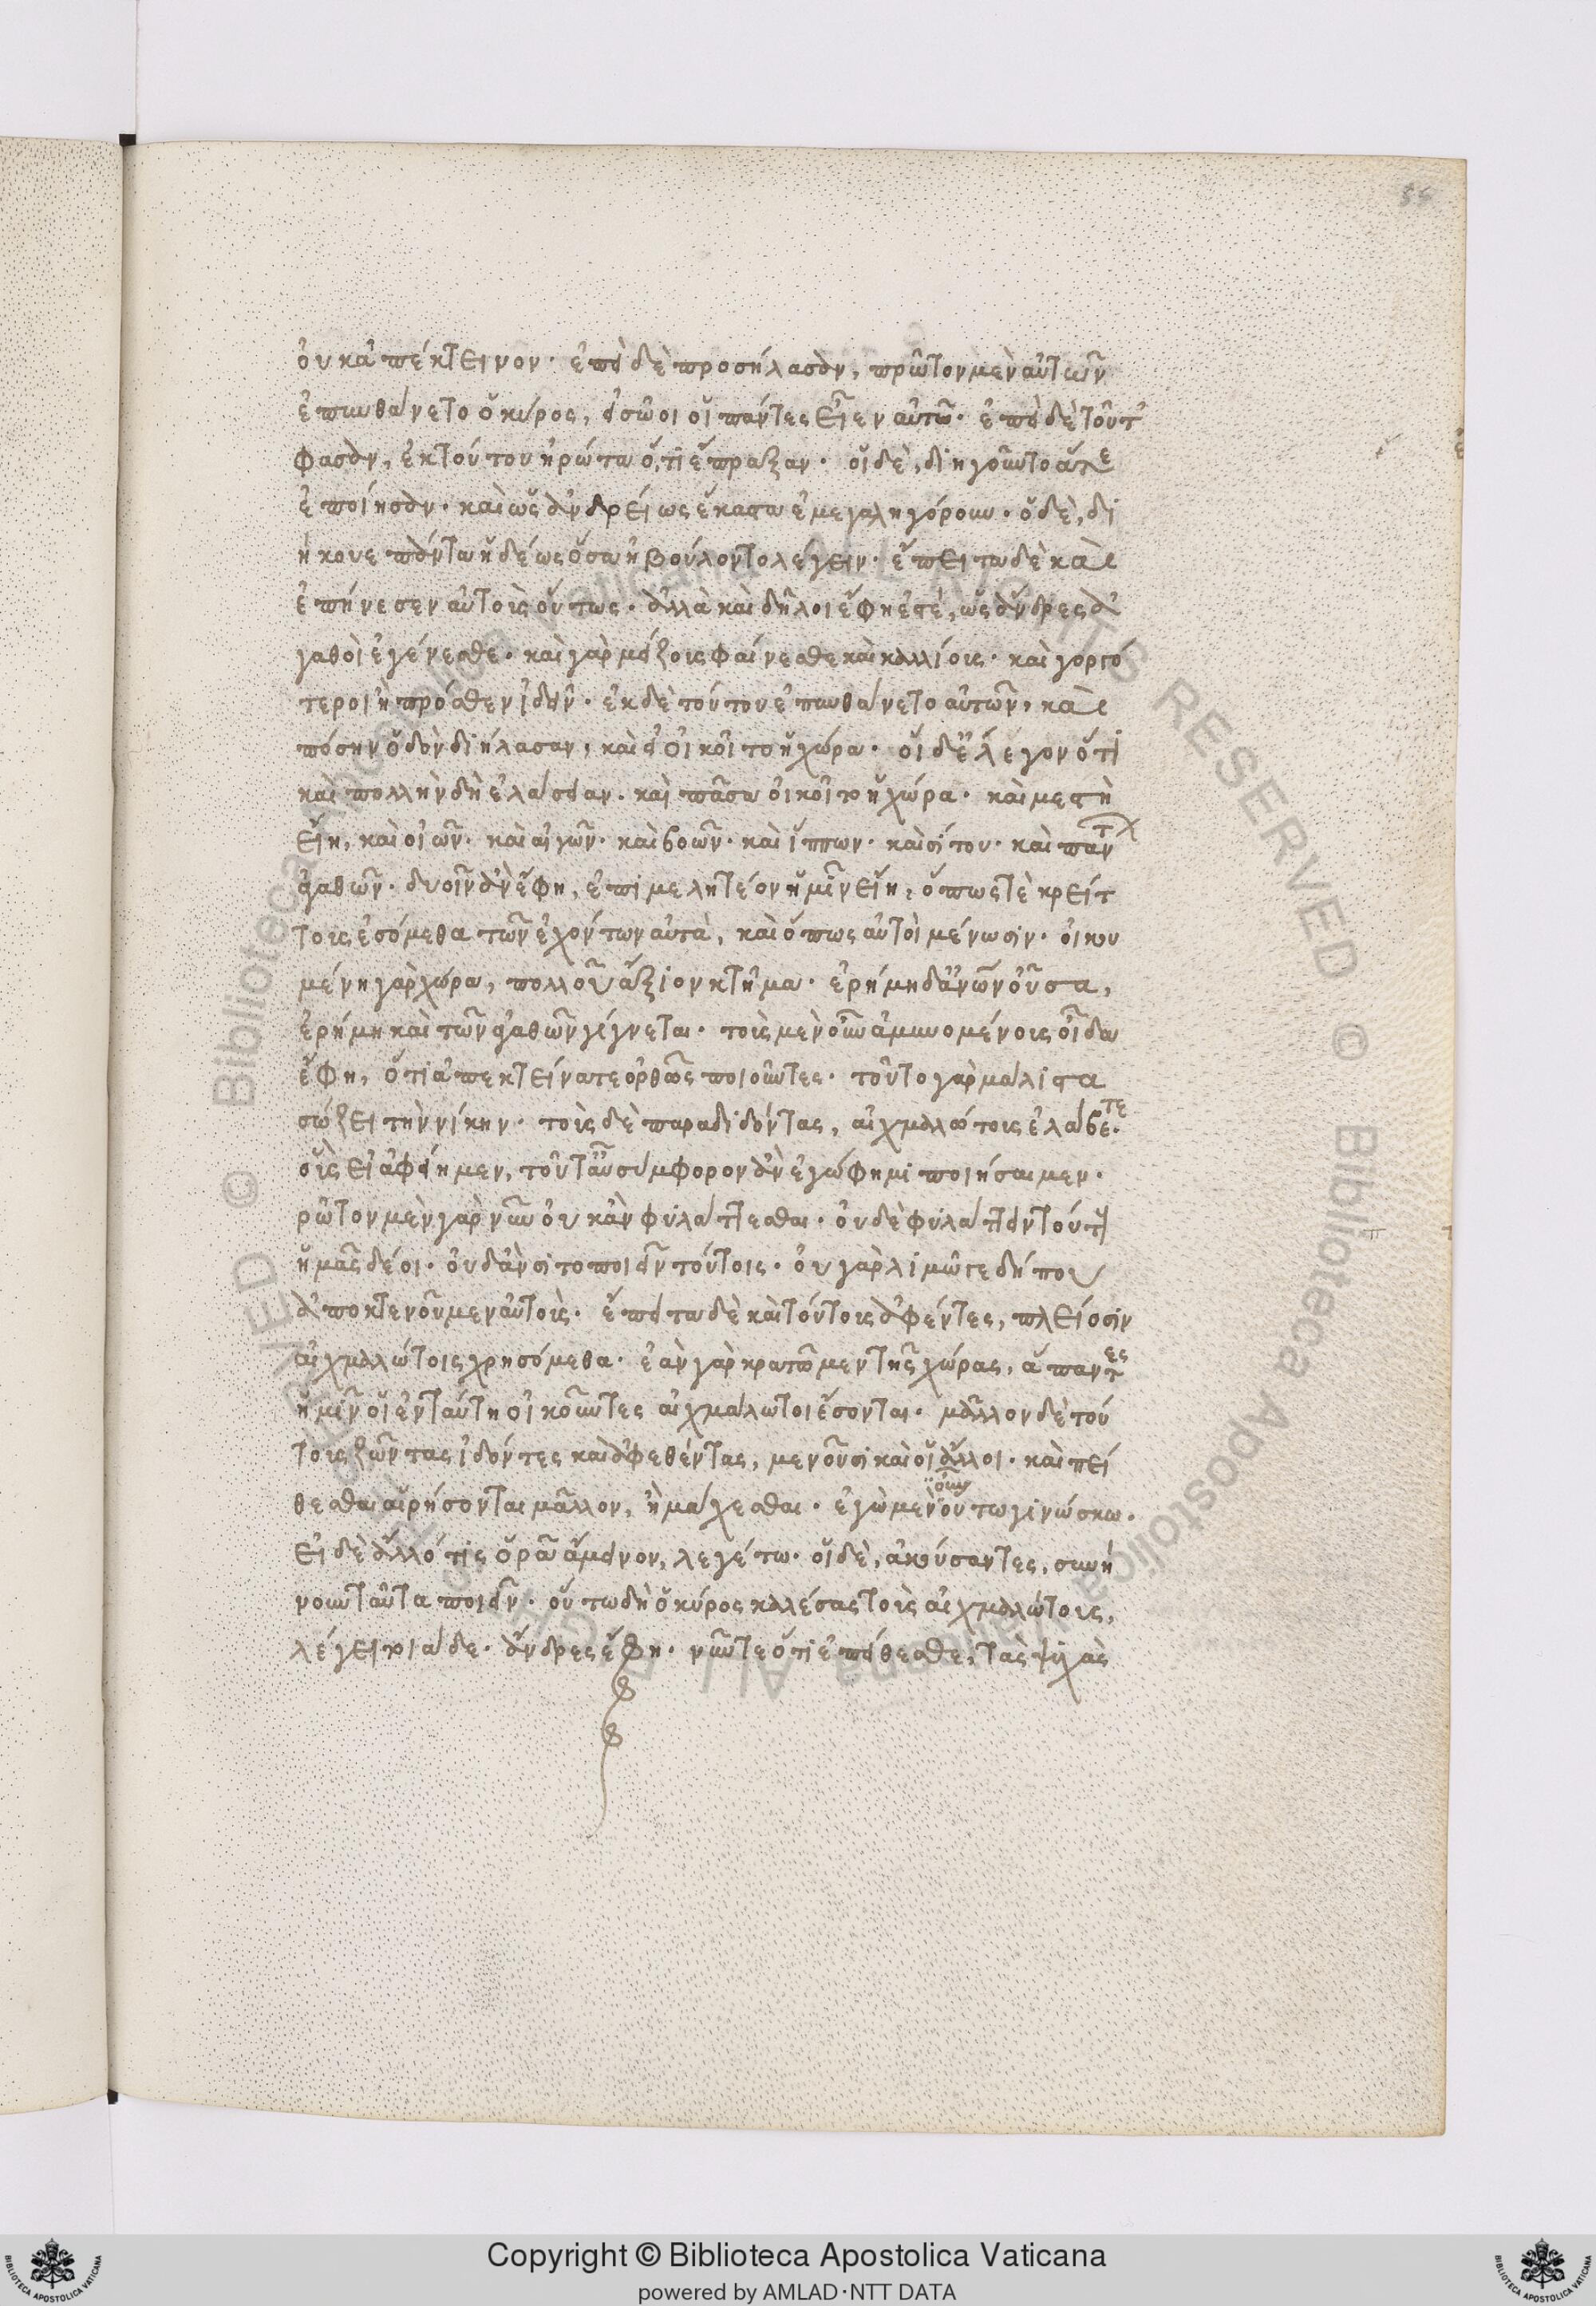 οὐκ ἀπέκτεινον· ἐπεὶ δὲ προσήλασαν, πρῶτον μὲν αὐτῶν
ἐπυνθάνετο ὁ κῦρος, εἰ σῶοι οἱ πάντες εἶεν αὐτῶ· ἐπεὶ δὲ τοῦτ'
φασαν, ἐκ τούτου ἠρώτα ὅ,τι ἔπραξαν· οἱ δὲ, διηγοῦντο ἅ τε
ἐποίησαν· καὶ ὡς ἀνδρείως ἕκαστα ἐμεγαληγόρουν· ὁ δὲ, δι
ήκουε πάντα ἡδέως ὅσα ἠβούλοντο λέγειν· ἔπειτα δὲ καὶ
ἐπήνεσεν αὐτοὺς οὕτως· ἀλλὰ καὶ δῆλοι ἔφη ἐστέ, ὡς ἄνδρες ἀ
γαθοὶ ἐγένεσθε· καὶ γὰρ μείζους φαίνεσθε καὶ καλλίους· καὶ γοργό
τεροι ἢ πρόσθεν ἰδεῖν· ἐκ δὲ τούτου ἐπυνθάνετο αὐτῶν, καὶ
πόσην ὁδὸν διήλασαν, καὶ εἰ οἰκοῖτο ἡ χώρα· οἱ δὲ ἔλεγον ὅτι
καὶ πολλὴν δὴ ἐλάσειαν· καὶ πᾶσα οἰκοῖτο ἡ χώρα· καὶ μεστὴ
εἴη, καὶ οἰῶν· καὶ αἰγῶν· καὶ βοῶν· καὶ ἵππων· καὶ σίτου· καὶ πάντ
ἀγαθῶν· δυοῖν ἂν ἔφη, ἐπιμελητέον ἡμῖν εἴη, ὅπως τὲ κρείτ
τους ἐσόμεθα τῶν ἐχόντων αὐτὰ, καὶ ὅπως αὐτοὶ μένωσιν· οἰκου
μένη γὰρ χώρα, πολλοῦ ἄξιον κτῆμα· ἐρήμη δ' ἀνῶν οὖσα,
ἐρήμη καὶ τῶν ἀγαθῶν γίγνεται· τοὺς μὲν οὖν ἀμυνομένους οἶδα
ἔφη, ὅτι ἀπεκτείνατε ὀρθῶς ποιοῦντες· τοῦτο γὰρ μάλιστα
σώζει τὴν νίκην· τοὺς δὲ παραδιδόντας, αἰχμαλώτους ἐλάβετε·
οὓς εἰ ἀφείημεν, τοῦτ' αὖ σύμφορον ἂν ἐγώ φημι ποιήσαιμεν·
ρῶτον μὲν γὰρ νῦν οὐκ ἂν φυλάττεσθαι· οὐδὲ φυλάττειν τούτους
ἡμᾶς δέοι· οὐδ' ἂν σιτοποιεῖν τούτοις· οὐ γὰρ λιμῶ γε δήπου
ἀποκτενοῦμεν αὐτοὺς· ἔπειτα δὲ καὶ τούτους ἀφέντες, πλείοσιν
αἰχμαλώτοις χρησόμεθα· ἐὰν γὰρ κρατῶμεν τῆς χώρας, ἅπαντες
ἡμῖν οἱ ἐνταύτη οἰκοῦντες αἰχμάλωτοι ἔσονται· μᾶλλον δὲ τού
τους ζῶντας ἰδόντες καὶ ἀφεθέντας, μενοῦσι καὶ οἱ ἄλλοι· καὶ πεί
θεσθαι αἱρήσονται μᾶλλον, ἢ μάχεσθαι· ἐγὼ μὲν οὖν οὕτω γινώσκω·
εἰ δὲ ἄλλό τις ὁρᾶ ἄμεινον, λεγέτω· οἱ δὲ, ἀκούσαντες, συνή
νουν ταῦτα ποιεῖν· οὕτω δὴ ὁ κύρος καλέσας τοὺς αἰχμαλώτους,
λέγει τοιάδε· ἄνδρες ἔφη· νῦν τε ὅτι ἐπείθεσθε, τὰς ψυχὰς
Copyright © Biblioteca Apostolica Vaticana
powered by AMLAD·NTT DATA